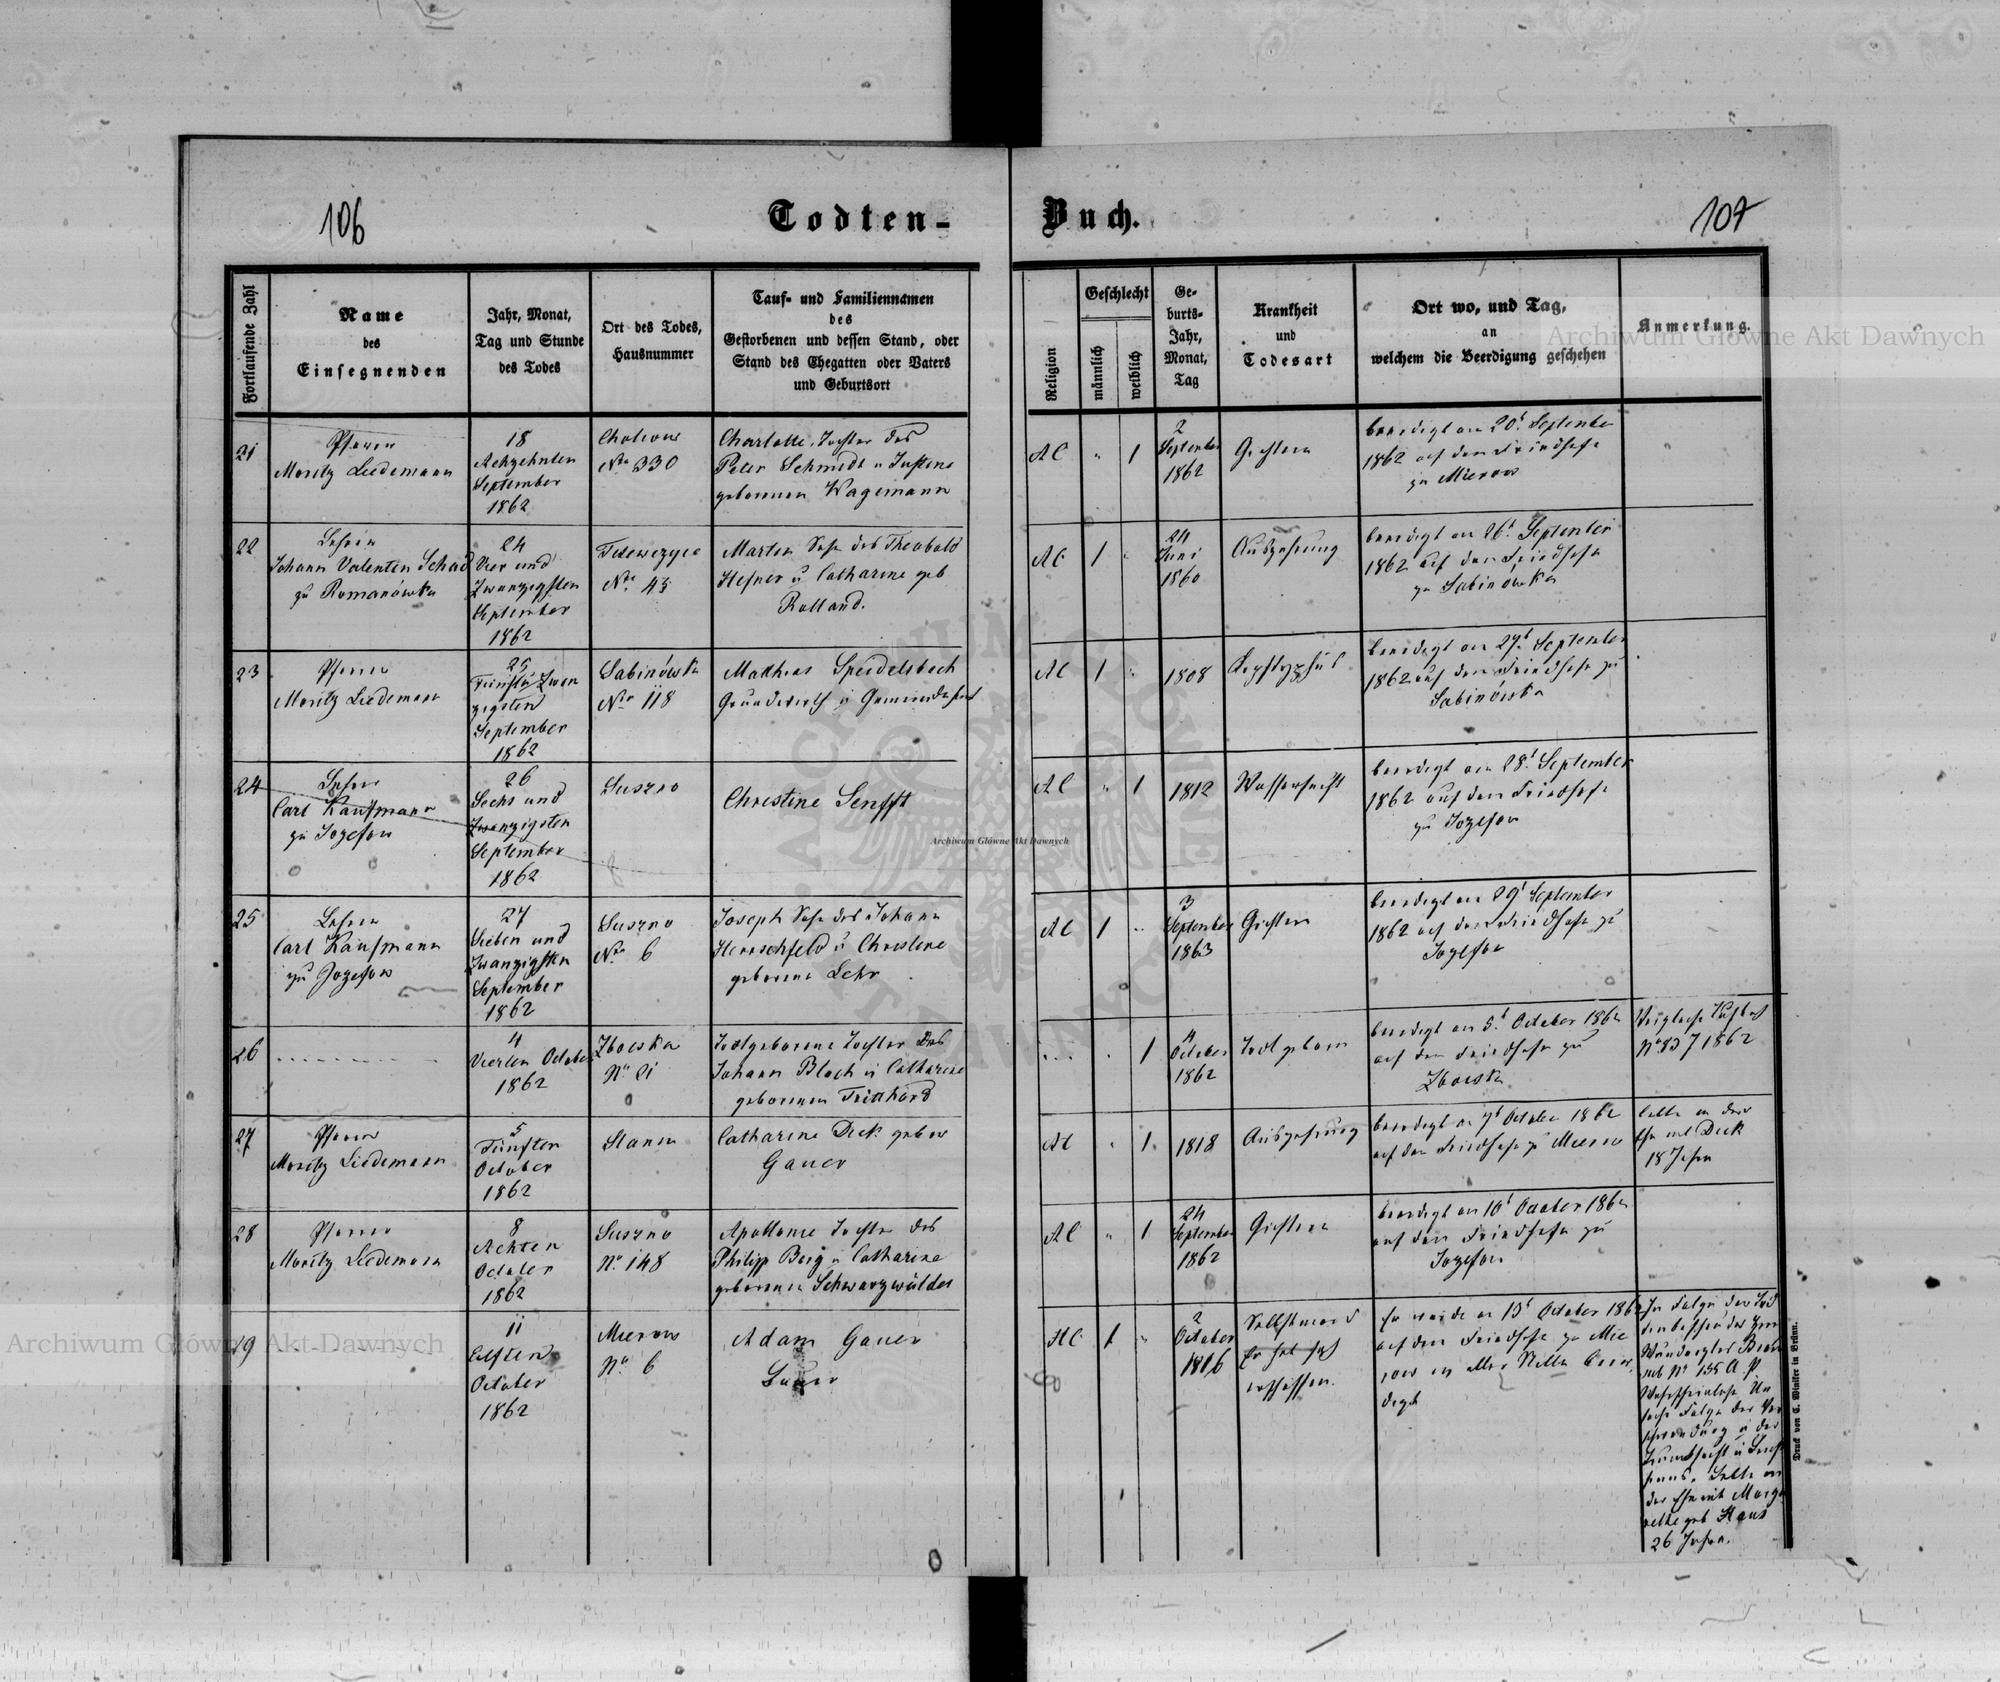 106
Todten-
Buch.
107
Fortlaufende Zahl
Name
des
Einsegnenden
Jahr, Monat,
Tag und Stunde
des Todes
Ort des Todes,
Hausnummer
Tauf- und Familiennamen
des
Gestorbenen und dessen Stand, oder
Stand des Ehegatten oder Vaters
und Geburtsort
Religion
Geschlecht
männlich
weiblich
Ge-
burts-
Jahr,
Monat,
Tag
Krankheit
und
Todesart
Ort wo, und Tag,
an
welchem die Beerdigung geschehen
Anmerkung.
21
Pfarrer
Moritz Liedemann
18
Achzehnten
September
1862
No 330
Charlotte, Tochter des
Peter Schmidt u Justine
geborenen Wagemann
AC
"
1
2
September
1862
Gichtern
beerdigt am 20t September
1862 auf dem Friedhofe
zu Mierow
22
Lehrer
Johann Valenten Schad
zu Romanówka
24
Vier und
Zwanzigsten
September
1862
No 43
Marten Sohn des Theobald
Hefner u Catharine geb
Rolland.
AC
1
"
24
Juni
1860
Auszehrung
beerdigt am 26t September
1862 auf dem Friedhofe
zu Sabinówka
23
Pfarrer
Moritz Liedemann
25
Fünfu Zwan
zigsten
September
1862
Sabinówka
No 118
Mathias Speidelsbach
Grundwirth u
AC
1
"
1808
beerdigt am 27t September
1862 auf dem Friedhofe zu
Sabinówka
24
Lehrer
Carl Kaufmann
zu Jozefow
26
Sechs und
Zwanzigsten
September
1862
Suszno
Christine Senfft
AC
"
1
1812
Wassersucht
beerdigt am 28t September
1862 auf dem Friedhofe
zu Jozefow
25
Lehrer
Carl Kaufmann
zu Jozefow
27
Sieben und
Zwanzigsten
September
1862
Suszno
No 6
Joseph Sohn des Johann
Herrschfeld u Christine
geborene Lehr
AC
1
"
3
September
1863
Gichtern
beerdigt am 29t September
1862 auf dem Friedhofe zu
Jozefow
26
4
Vierten October
1862
Zboiska
Todtgeborene Tochter des
Johann Bloch u Catharine
geborenen Tritthard
"
1
4
October
1862
Todtgeboren
beerdigt am 5t October 1862
auf dem Friedhofe zu
Zboiska
1862
27
Pfarrer
Moritz Liedemann
5
Fünften
October
1862
Stanin
Catharine Deck gebor
Gauer
AC
"
1
1818
Auszehrung
beerdigt am 7t October 1862
auf dem Friedhofe zu Mierow
Lebte in der
Ehe mit Deck
18 Jahre
28
Pfarrer
Moritz Liedemann
8
Achten
October
1862
Suszno
No 148
Apollonie Tochter des
Philipp Berg u Catharine
geborenen Schwarzwälder
AC
"
1
24
September
1862
Gichtern
beerdigt am 10t October 1862
auf dem Friedhofe zu
Jozefow
29
11
Eilften
October
1862
Mierow
No 6
Adam Gauer
HC
1
"
2
October
1816
Selbstmord
Er hat sich
erschossen.
Er wurde am 13t October 1862
auf dem Friedhofe zu Mie
row in aller Stille beer
digt
In Folge der Tod
tenbeschau des Herrn
Wundarztes
No 135
Wahrscheinliche Ur
sache Folge der Ver
schwendung u der
Trunksucht u
Lebte in
der Ehe mit Marga
rethe geb Haus
26 Jahre.
Druck von C. Winiker in Brünn.
Archiwum Główne Akt Dawnych
Archiwum Główne Akt Dawnych
Archiwum Główne Akt Dawnych